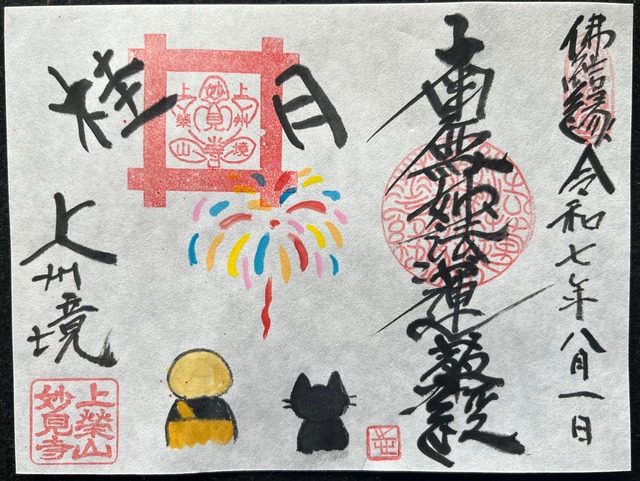 佛結縁 令和七年八月一日
南無妙法蓮華經
桂月
上州境
妙見寺
上榮山
上州境
上榮山
妙見寺